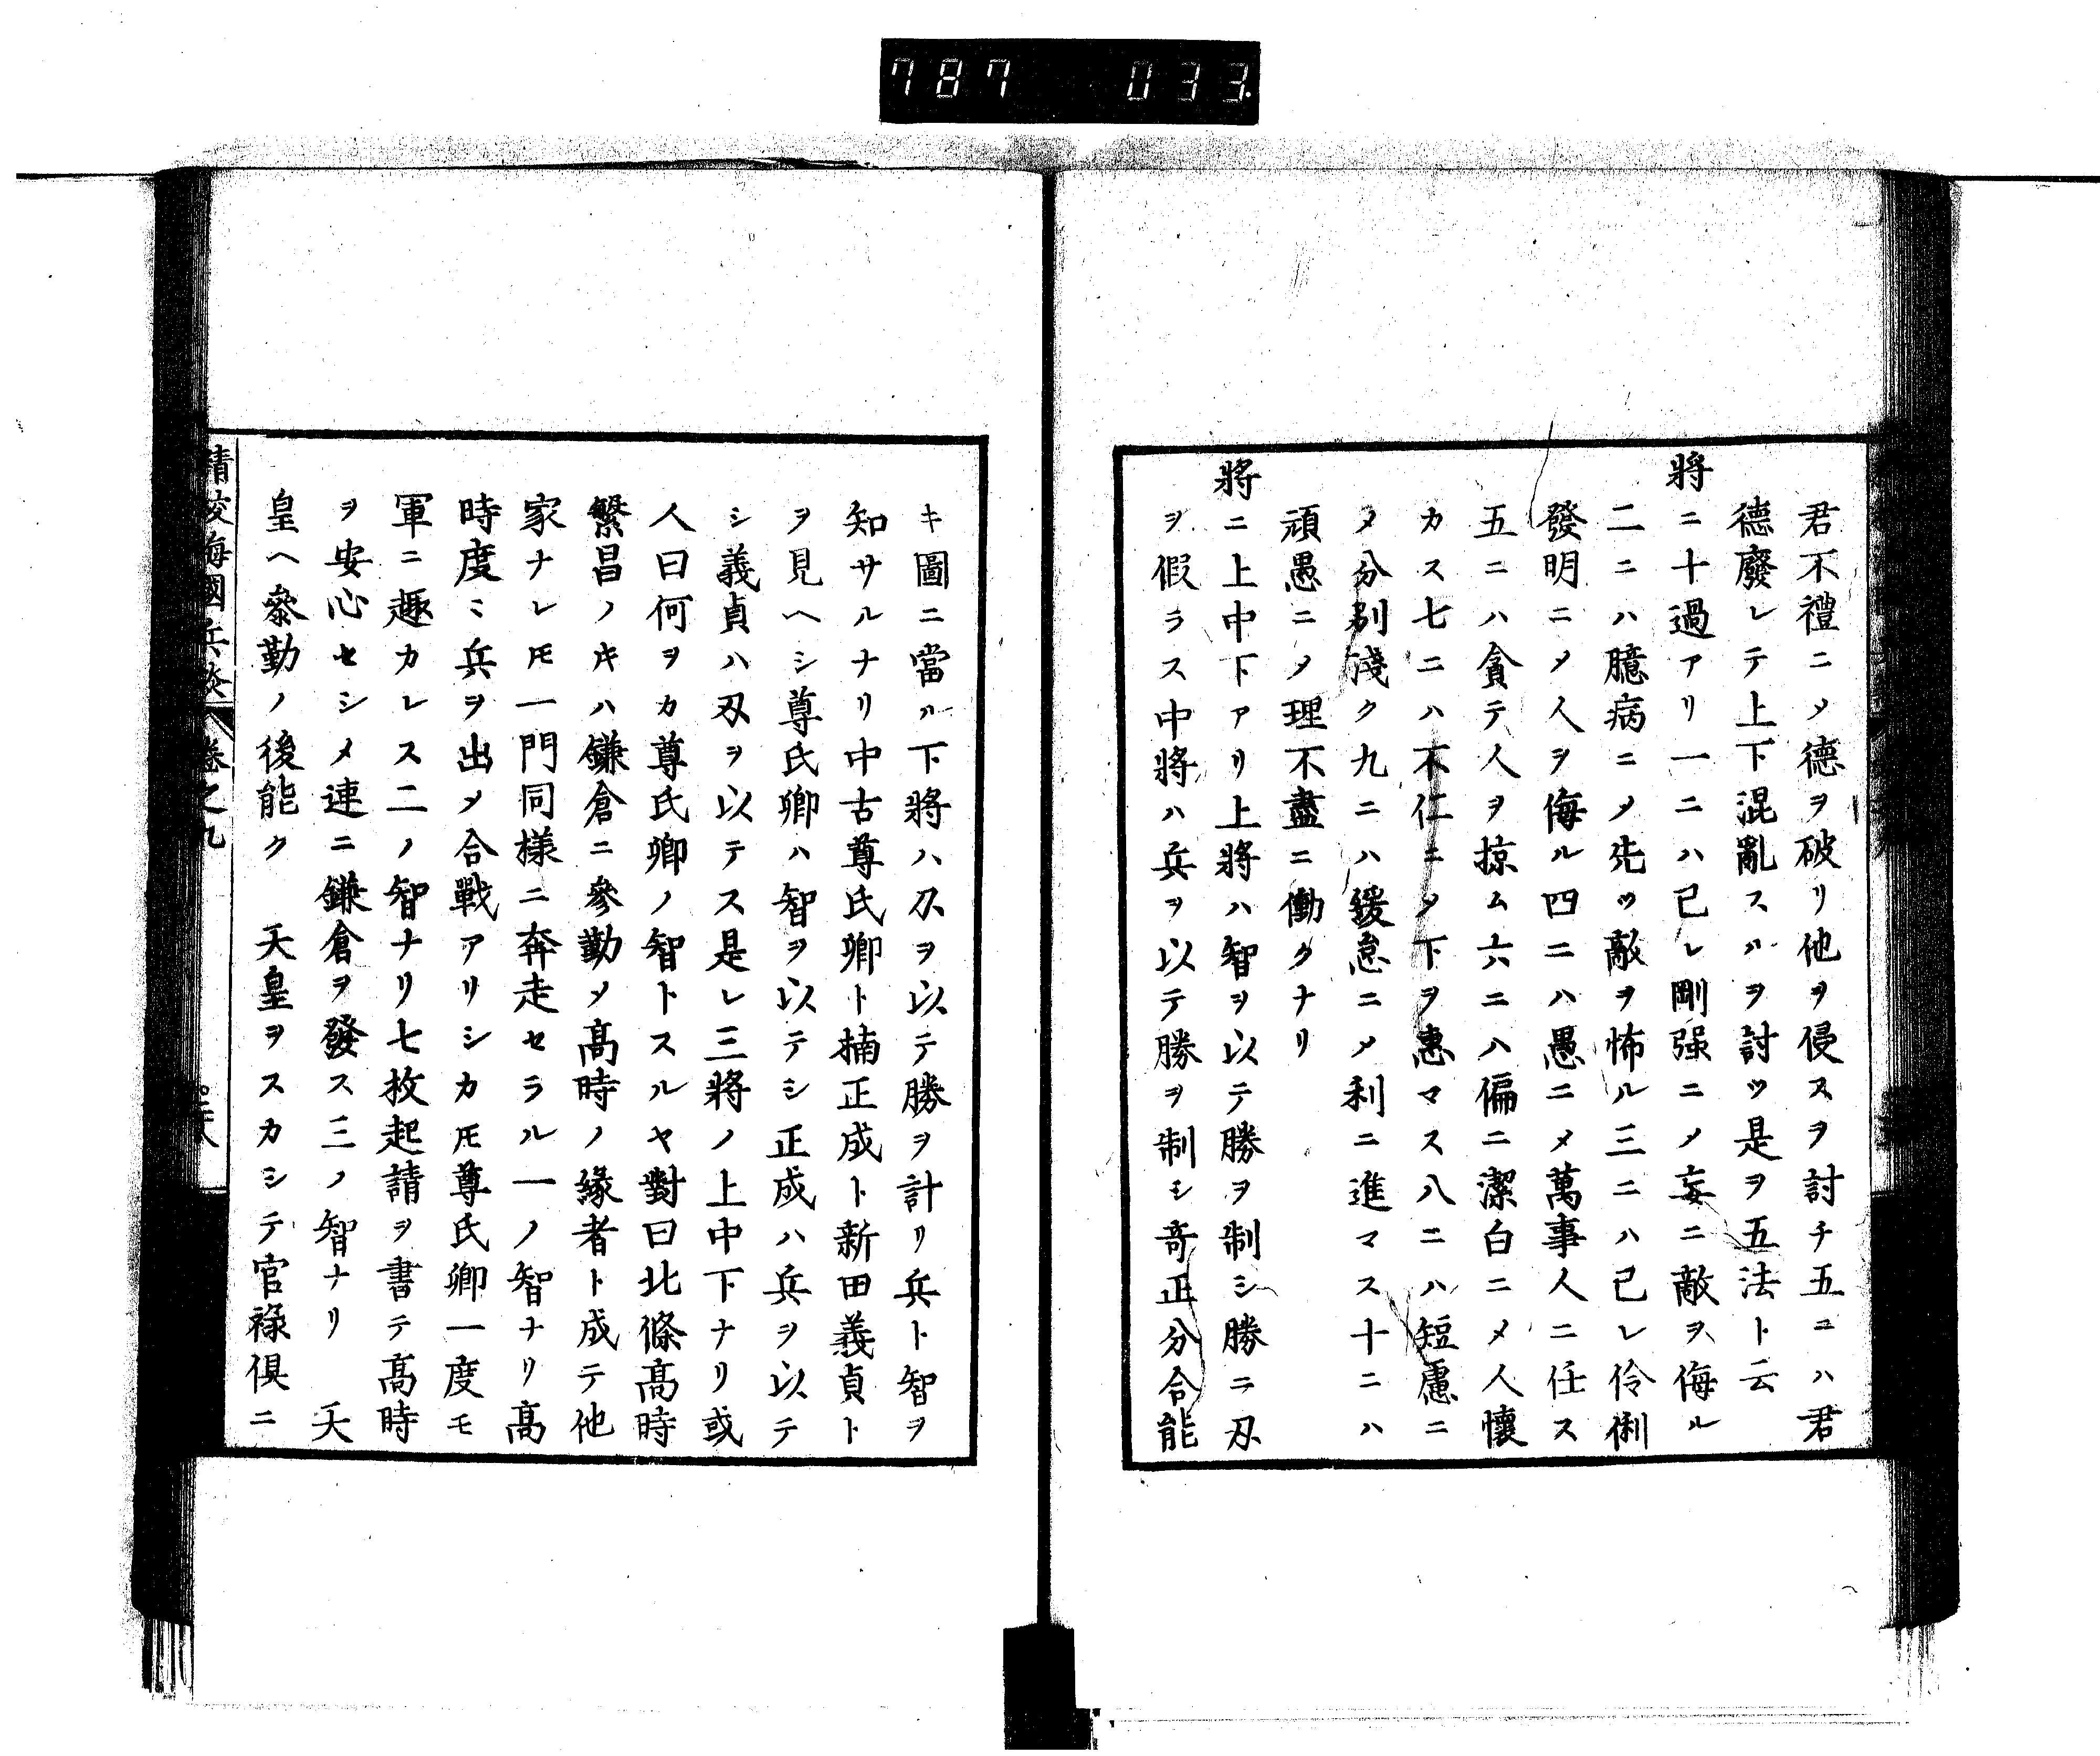 787 033
君不禮ニメ德ヲ破リ他ヲ侵スヲ討チ五ニハ君
德廢レテ上下混亂スルヲ討ツ是ヲ五法ト云
將ニ十過アリ一ニハ己レ剛强ニメ妄ニ敵ヲ侮ル
二ニハ臆病ニメ先ツ敵ヲ怖ル三ニハ己レ伶俐
發明ニメ人ヲ侮ル四ニハ愚ニメ萬事人ニ任ス
五ニハ貪テ人ヲ掠ム六ニハ偏ニ潔白ニメ人懷
カス七ニハ不仁ニメ下ヲ惠マス八ニハ短慮ニ
メ分別淺ク九ニハ緩怠ニメ利ニ進マス十ニハ
頑愚ニメ理不盡ニ働クナリ
將ニ上中下アリ上將ハ智ヲ以テ勝ヲ制シ勝ニ刃
ヲ假ラス中將ハ兵ヲ以テ勝ヲ制シ奇正分合能
キ圖ニ當ル下將ハ刃ヲ以テ勝ヲ計リ兵ト智ヲ
知サルナリ中古尊氏卿ト楠正成ト新田義貞ト
ヲ見ヘシ尊氏卿ハ智ヲ以テシ正成ハ兵ヲ以テ
シ義貞ハ刃ヲ以テス是レ三將ノ上中下ナリ或
人曰何ヲカ尊氏卿ノ智トスルヤ對曰北條高時
繁昌ノキハ鎌倉ニ參勤メ高時ノ緣者ト成テ他
家ナレ𪜈一門同樣ニ奔走セラル一ノ智ナリ高
時度ミ兵ヲ出メ合戰アリシカ𪜈尊氏卿一度モ
軍ニ趣カレス二ノ智ナリ七枚起請ヲ書テ高時
ヲ安心セシメ連ニ鎌倉ヲ發ス三ノ智ナリ 天
皇ヘ參勤ノ後能ク 天皇ヲスカシテ官祿俱ニ
精校海國兵談 卷之九